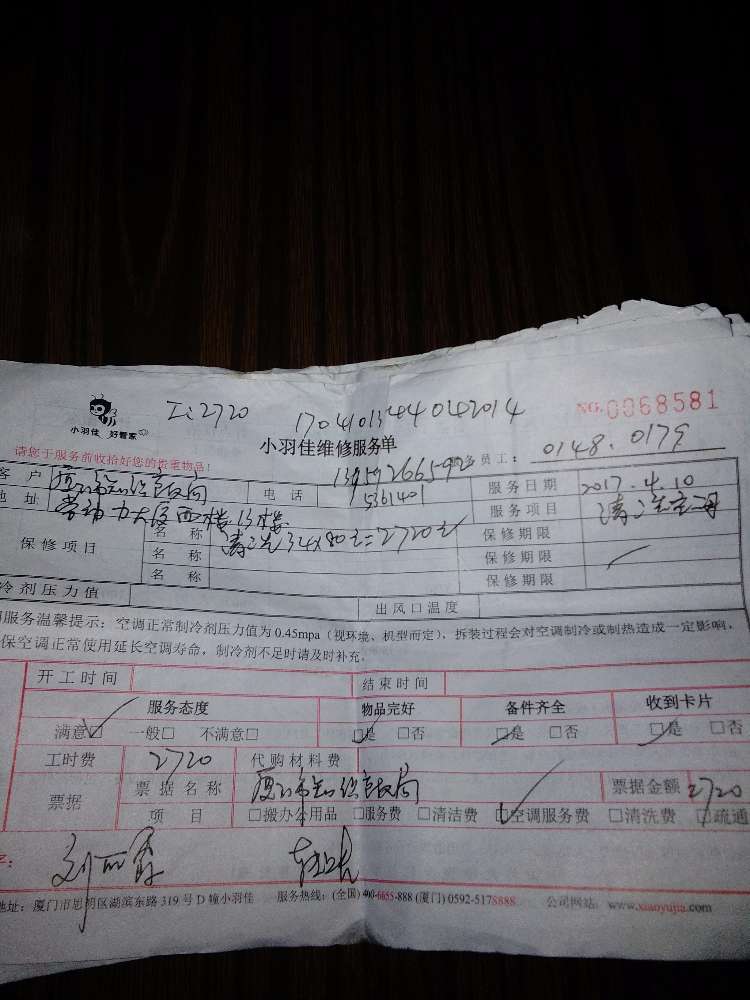 工:2720 1704101344042014 NO.0068581
小羽佳 好管家
小羽佳维修服务单
请您于服务前收拾好您的贵重物品! 务员工: 0148.0179
客 户 电 话 13959266592 服务日期 2017.4.10
地 址 劳动力大厦西楼13楼 5361401 服务项目 清洗空调
保修项目 名 称 清洗34x80元=2720元 保修期限
名 称 保修期限
名 称 保修期限
冷剂压力值 出风口温度
服务温馨提示: 空调正常制冷剂压力值为 0.45mpa (视环境、机型而定), 拆装过程会对空调制冷或制热造成一定影响,
保空调正常使用延长空调寿命, 制冷剂不足时请及时补充.
开工时间 结束时间
服务态度 物品完好 备件齐全 收到卡片
满意☑ 一般□ 不满意□ ☑是 □否 ☑是 □否 ☑是 □否
工时费 2720 代购材料费
票据 票据名称 票据金额 2720
项 目 □搬办公用品 □服务费 □清洁费 ☑空调服务费 □清洗费 □疏通
字:
地址: 厦门市思明区湖滨东路 319 号 D 幢小羽佳 服务热线: (全国) 400-6655-888 (厦门) 0592-5178888 公司网站: www.xiaoyujia.com